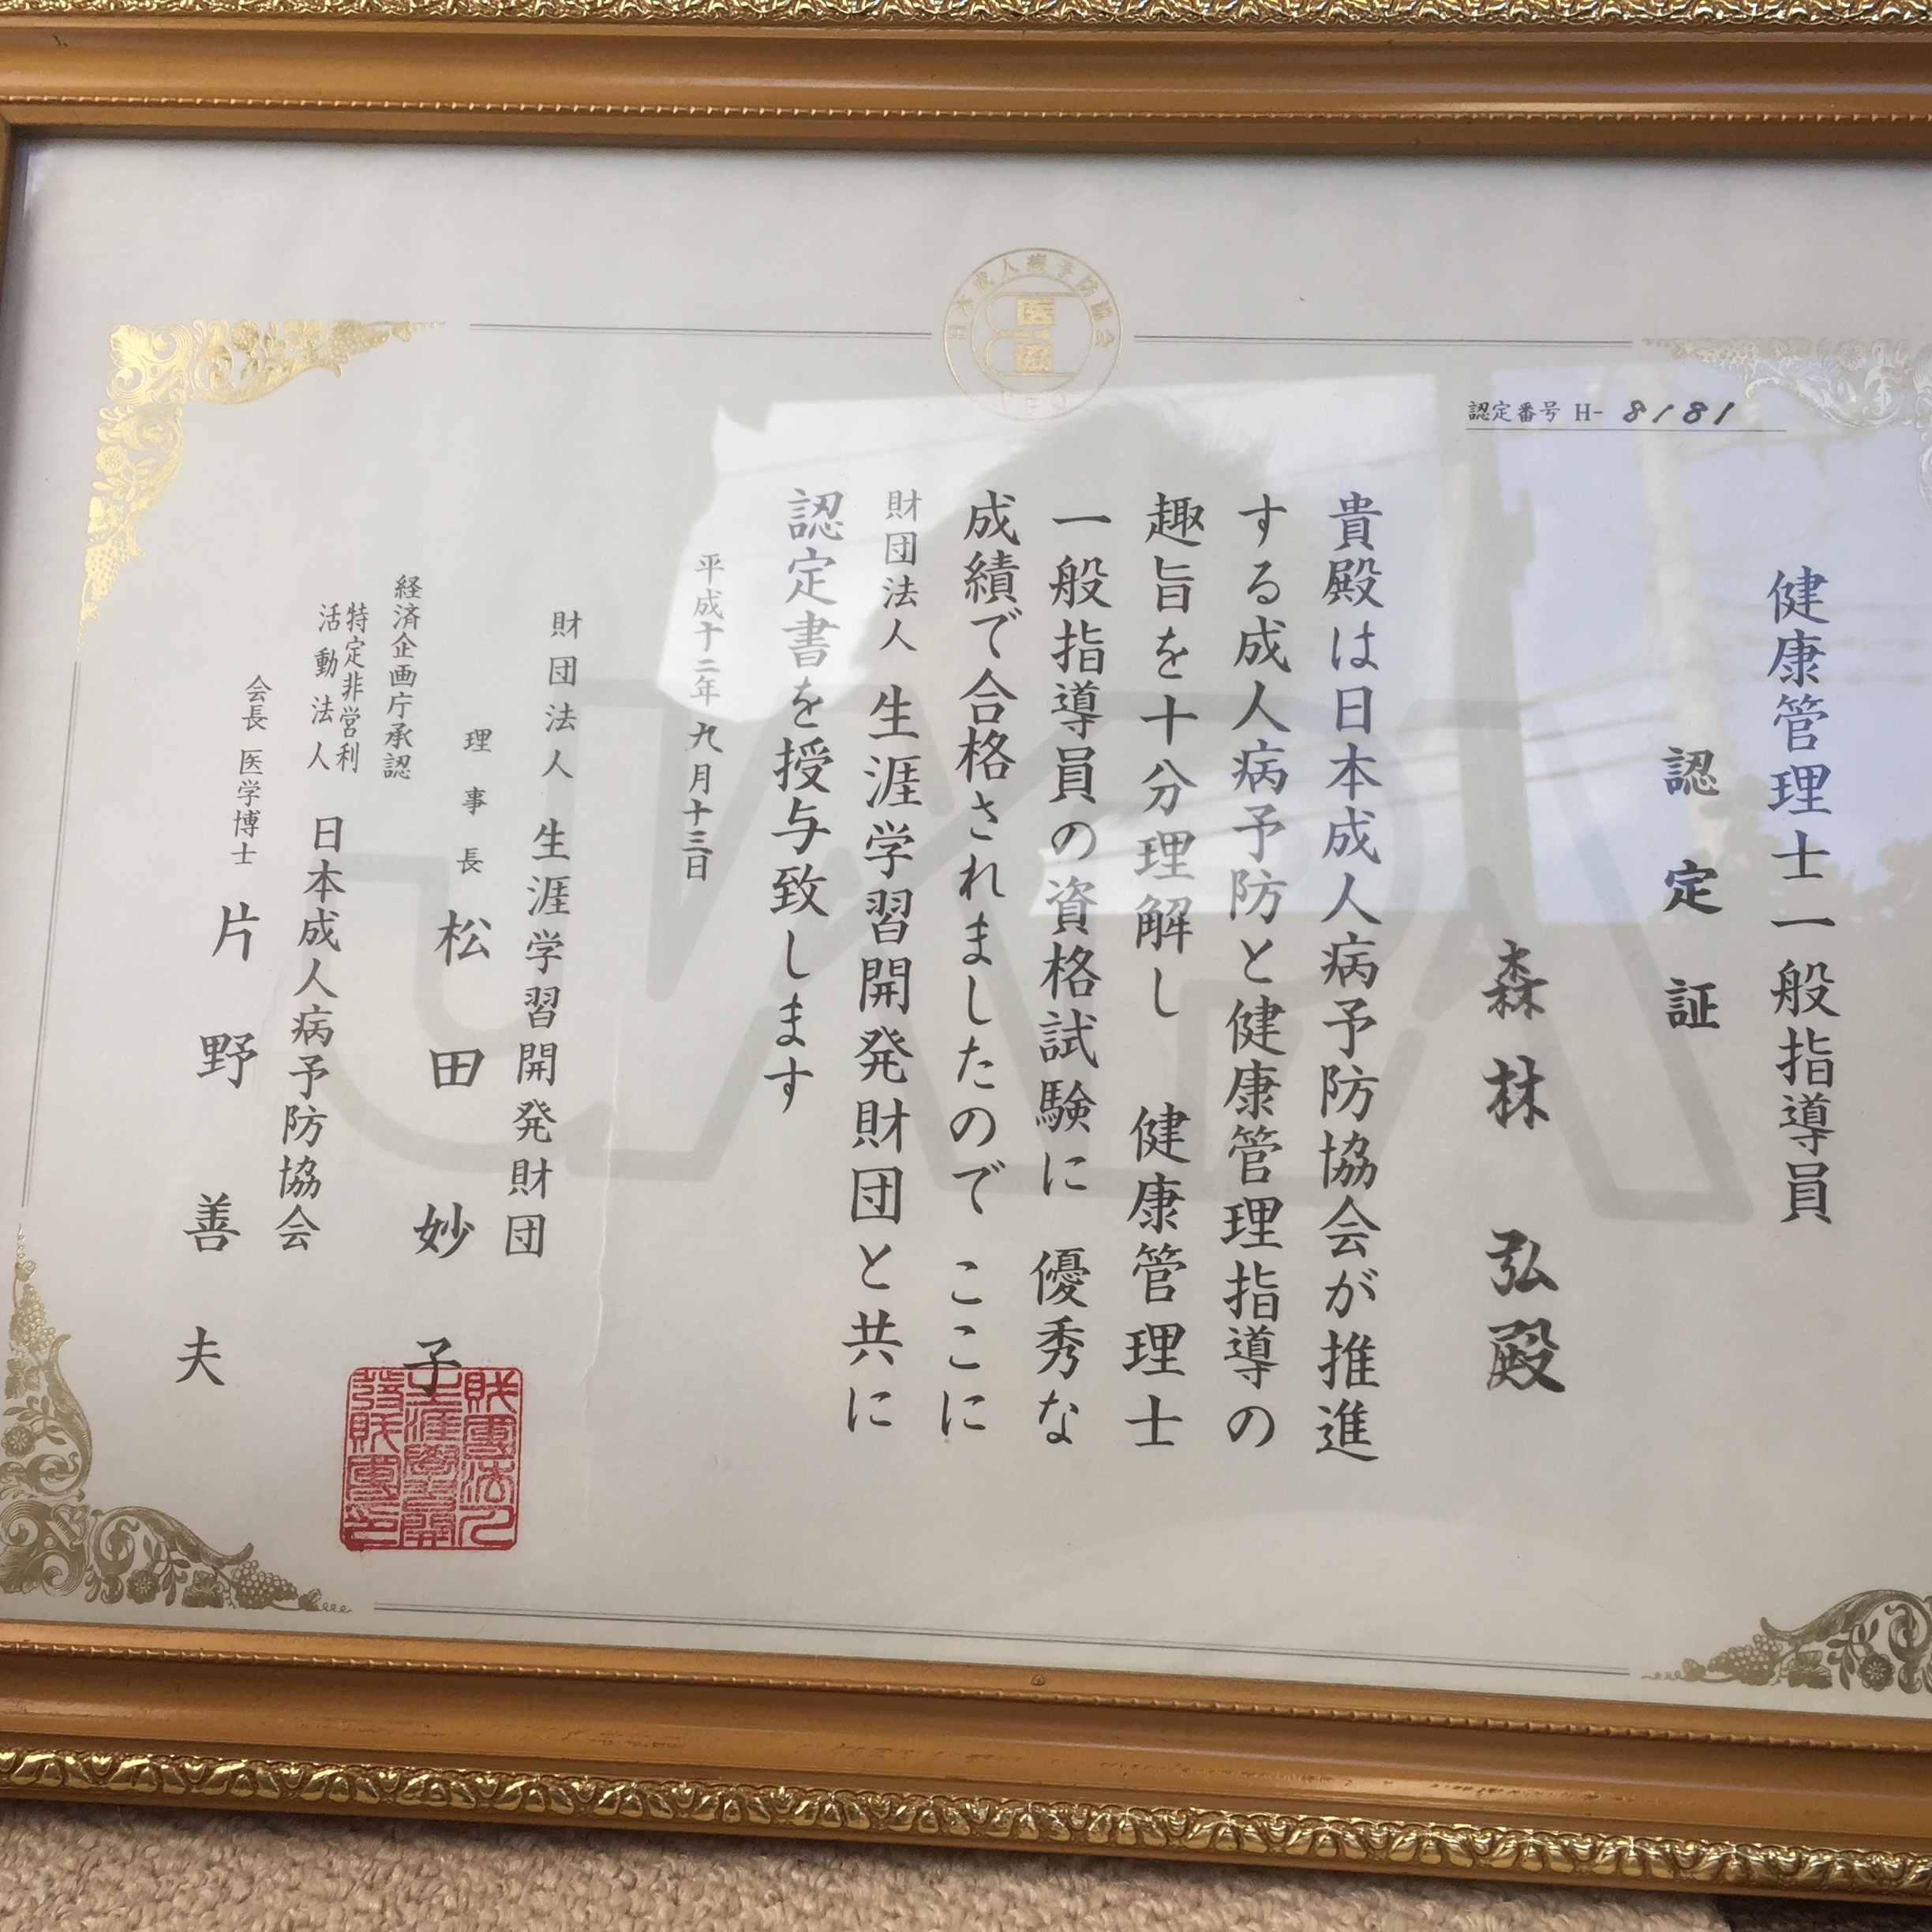 日本成人病予防協会
医協
認定番号 H- 8181
健康管理士一般指導員
認定証
森林 弘殿
貴殿は日本成人病予防協会が推進
する成人病予防と健康管理指導の
趣旨を十分理解し 健康管理士
一般指導員の資格試験に 優秀な
成績で合格されましたので ここに
財団法人 生涯学習開発財団と共に
認定書を授与致します
平成十二年九月十三日
財団法人 生涯学習開発財団
理事長 松田妙子
経済企画庁承認
特定非営利
活動法人 日本成人病予防協会
会長 医学博士 片野善夫
財團法人
生涯學習開
發財團印
JAPA